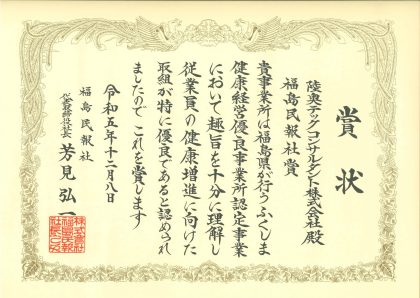 賞状
福島民報社賞
陸奥テックコンサルタント株式会社殿
貴事業所は福島県が行うふくしま
健康経営優良事業所認定事業
において趣旨を十分に理解し
従業員の健康増進に向けた
取組が特に優良であると認められ
ましたので これを賞します
令和五年十二月八日
福島民報社
代表取締役社長 芳見弘一